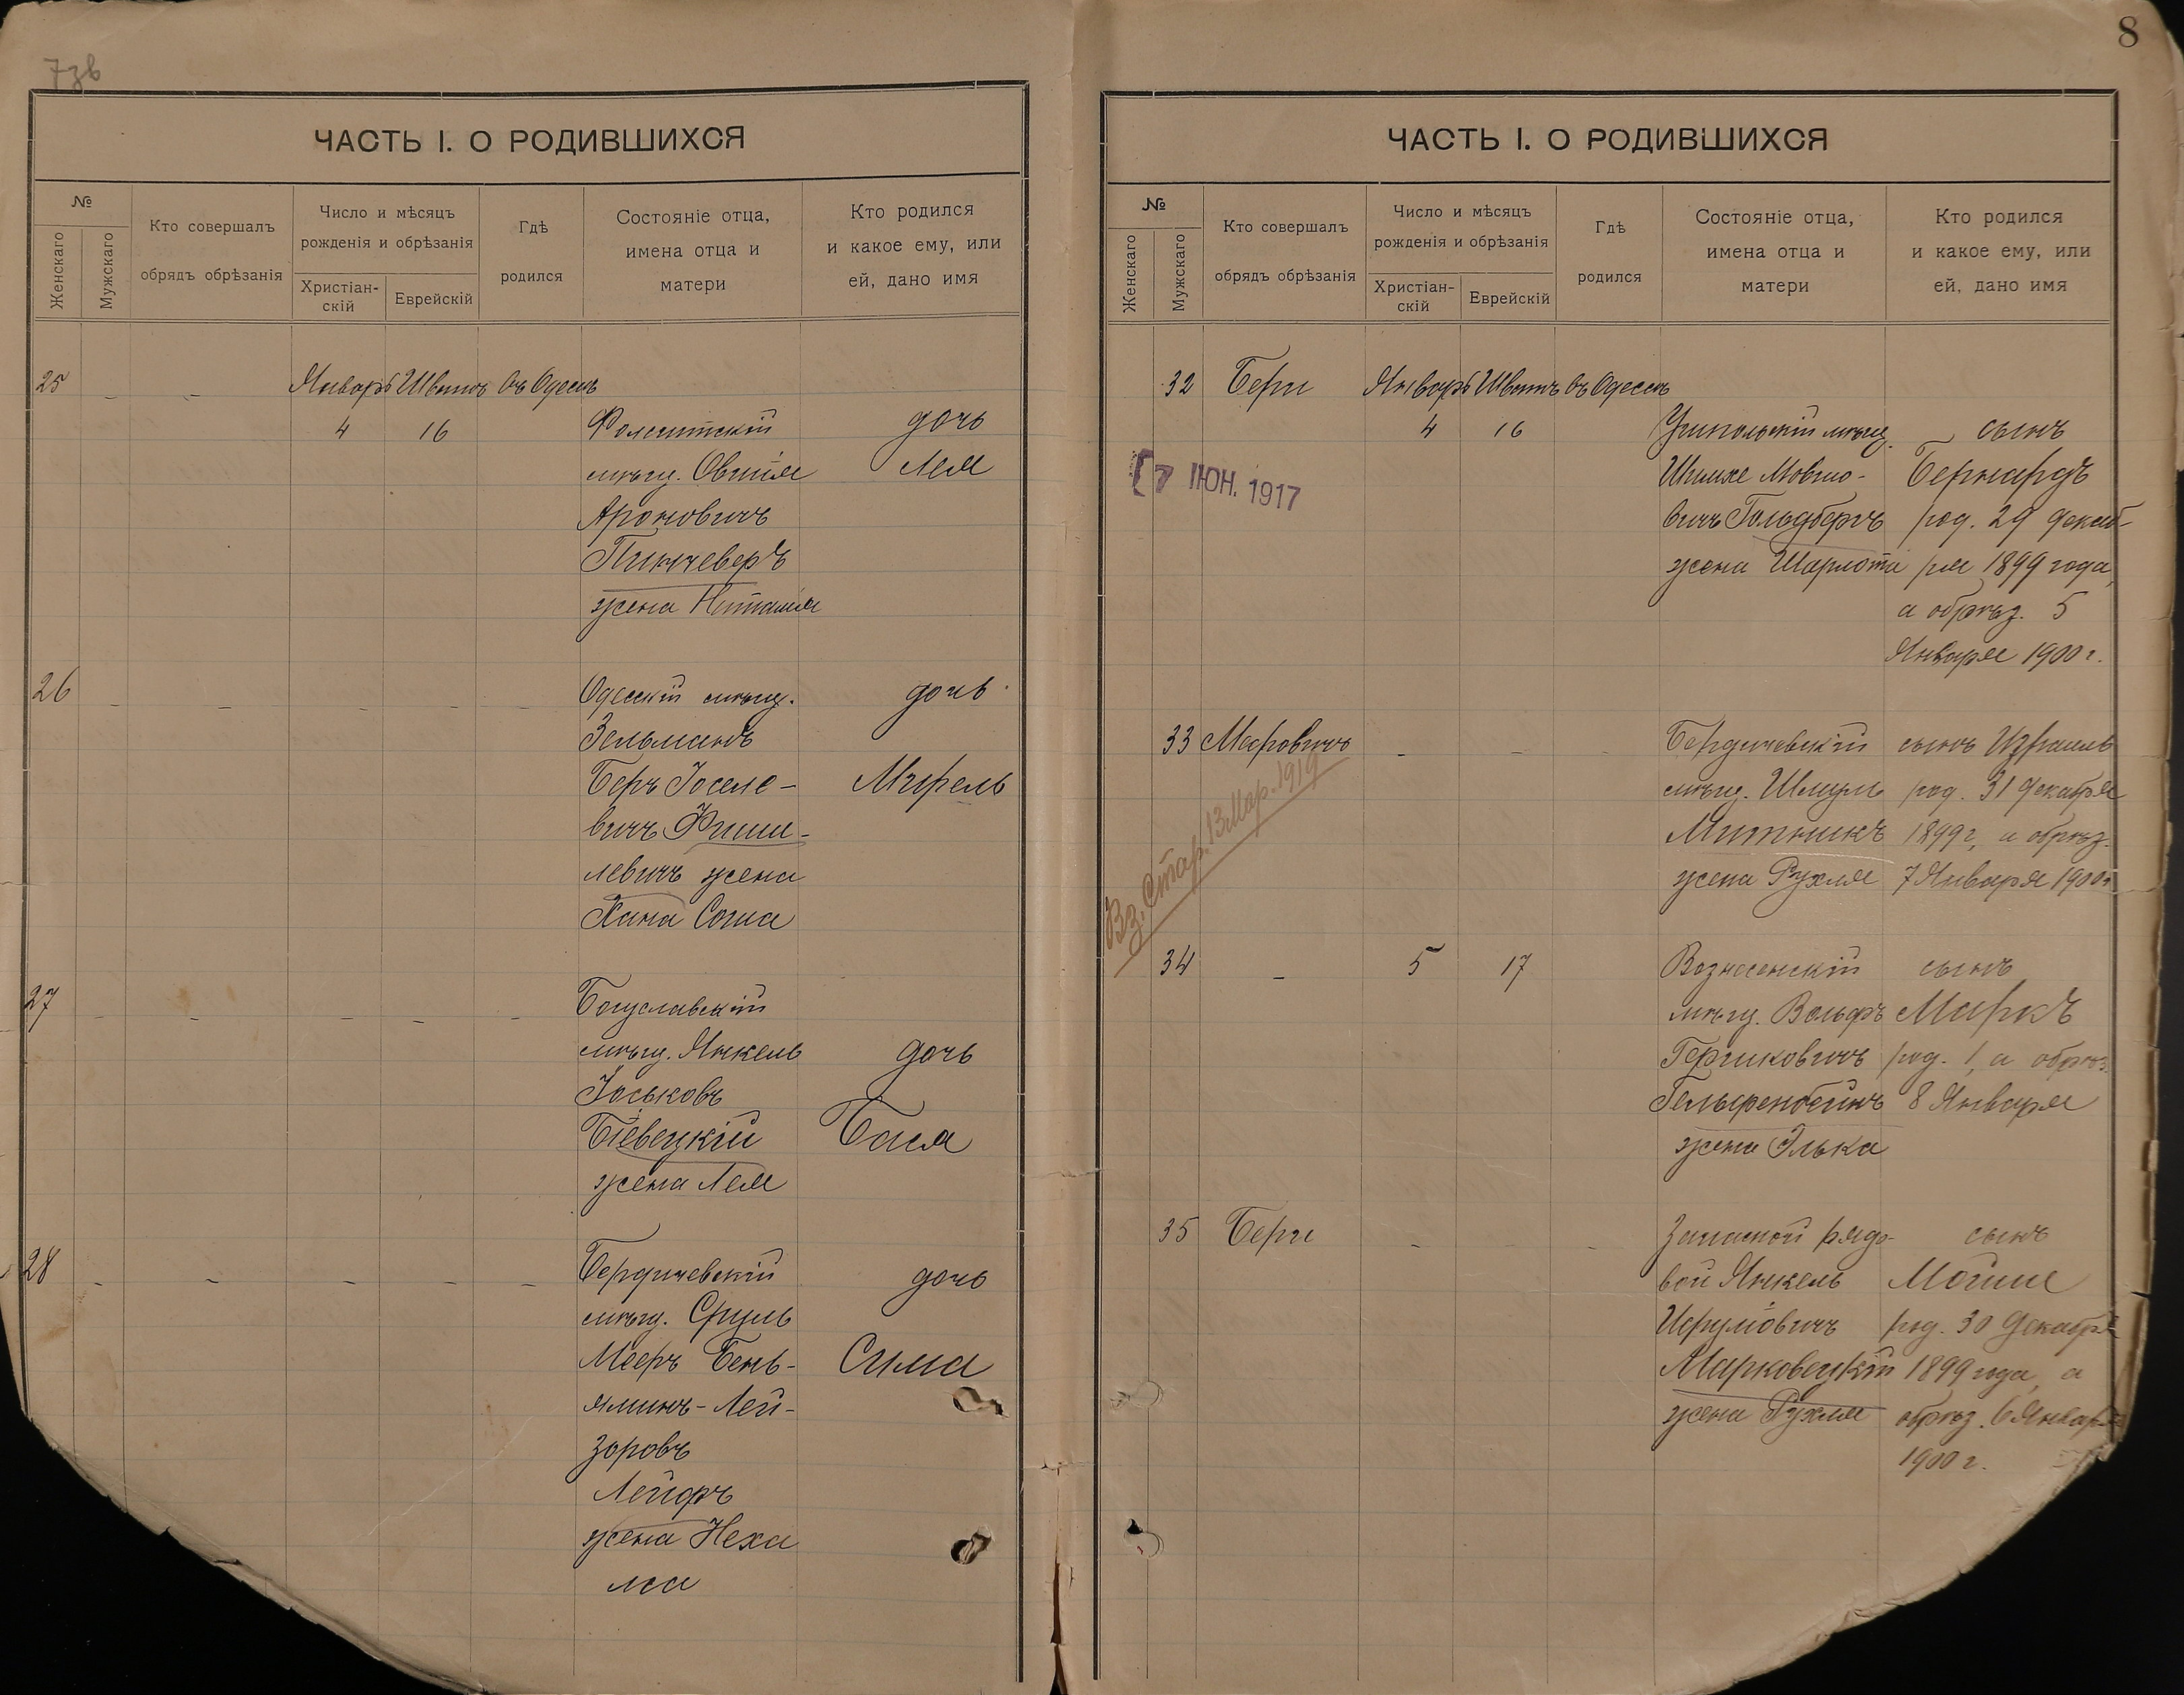 7зв
ЧАСТЬ I. О РОДИВШИХСЯ
№
Женскаго
Мужскаго
Кто совершалъ
обрядъ обрѣзанія
Число и мѣсяцъ
рожденія и обрѣзанія
Христіан-
скій
Еврейскій
Гдѣ
родился
Состояніе отца,
имена отца и
матери
Кто родился
и какое ему, или
ей, дано имя
25 – – Январь Шватъ въ Одессѣ
4 16 дочь
мѣщ. Овшія Лея
Ароновичъ
Пинчеверъ
жена Наталія
26 – – – – – Одесскій мѣщ. дочь
Зельманъ
Беръ Іосело- Мирель
вичъ Фиши-
левичъ жена
Хана Соша
27 – – – – – Богуславскій
мѣщ. Янкель дочь
Іоськовъ
Біевецкій Бася
жена Лея
28 – – – – – Бердичевскій дочь
мѣщ. Сруль
Мееръ Бень- Сима
яминъ-Лей-
зоровъ
жена Неха
8
ЧАСТЬ I. О РОДИВШИХСЯ
№
Женскаго
Мужскаго
Кто совершалъ
обрядъ обрѣзанія
Число и мѣсяцъ
рожденія и обрѣзанія
Христіан-
скій
Еврейскій
Гдѣ
родился
Состояніе отца,
имена отца и
матери
Кто родился
и какое ему, или
ей, дано имя
32 Январь Шватъ въ Одессѣ
4 16 мѣщ. сынъ
7 ІЮН. 1917
Мовшо- Бернардъ
вичъ Гольдбергъ род. 29 декаб-
жена Шарлота ря 1899 года,
а обрѣз. 5
Января 1900 г.
33 Мееровичъ – – – Бердичевскій сынъ Израиль
мѣщ. Шмуль род. 31 декабря
Митникъ 1899 г, а обрѣз.
жена Рухля 7 Января 1900 г
Вз. Стар. 13 Мар. 1919
34 – 5 17 Вознесенскій сынъ
мѣщ. Вольфъ Маркъ
Гершковичъ род. 1, а обрѣз.
Гельфенбейнъ 8 Января
жена Элька
35 – – – Запасной рядо- сынъ
вой Янкель Мойше
род. 30 декабря
Марковецкій 1899 года, а
жена Рухля обрѣз. 6 Января
1900 г.